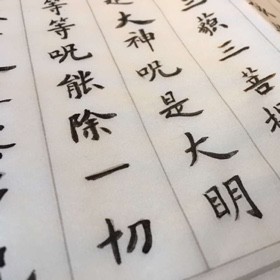 三藐三菩提
是大神呪是大明
等等呪能除一切